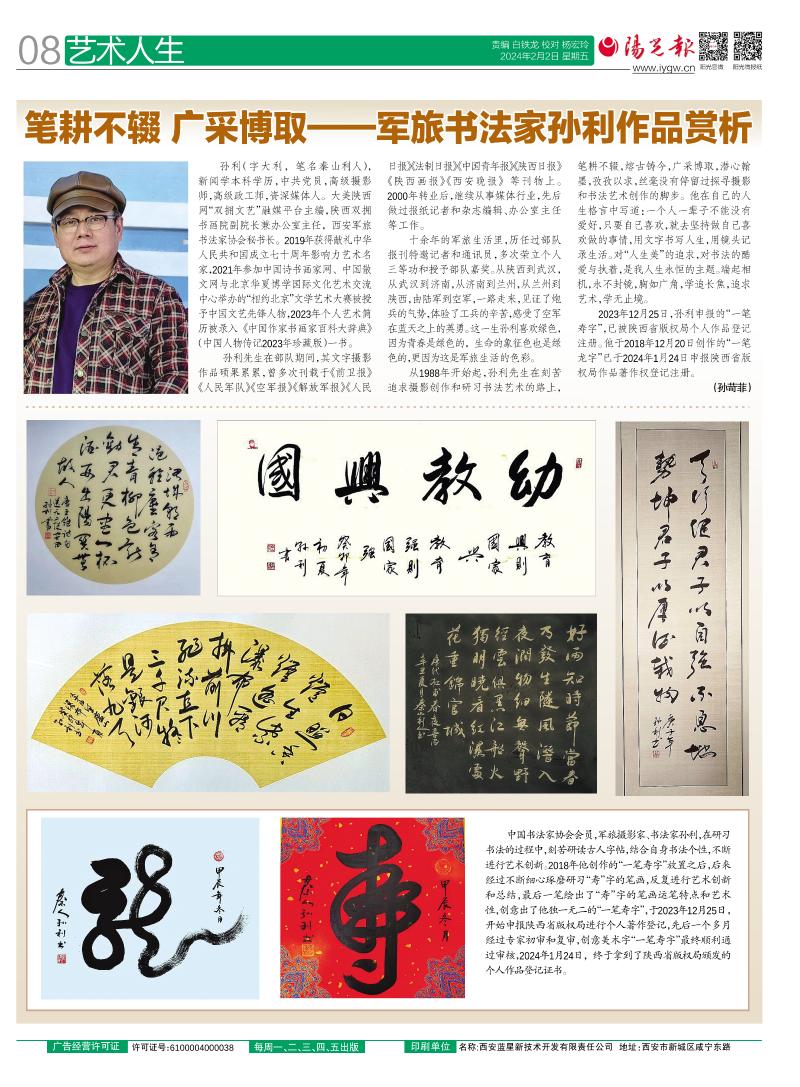 08 艺术人生
责编 白铁龙 校对 杨宏玲
2024年2月2日 星期五
陽光報
www.iygw.cn
阳光官微 阳光微报纸
笔耕不辍 广采博取——军旅书法家孙利作品赏析
孙利(字大利, 笔名秦山利人),
新闻学本科学历,中共党员,高级摄影
师,高级政工师,资深媒体人。大美陕西
网“双拥文艺”融媒平台主编,陕西双拥
书画院副院长兼办公室主任, 西安军旅
书法家协会秘书长。2019年获得献礼中华
人民共和国成立七十周年影响力艺术名
家,2021年参加中国诗书画家网、中国散
文网与北京华夏博学国际文化艺术交流
中心举办的“相约北京”文学艺术大赛被授
予中国文艺先锋人物,2023年个人艺术简
历被录入《中国作家书画家百科大辞典》
(中国人物传记2023年珍藏版)一书。
孙利先生在部队期间,其文字摄影
作品硕果累累,曾多次刊载于《前卫报》
《人民军队》《空军报》《解放军报》《人民
日报》《法制日报》《中国青年报》《陕西日报》
《陕西画报》《西安晚报》等刊物上。
2000年转业后,继续从事媒体行业,先后
做过报纸记者和杂志编辑、办公室主任
等工作。
十余年的军旅生活里,历任过部队
报刊特邀记者和通讯员,多次荣立个人
三等功和授予部队嘉奖。从陕西到武汉,
从武汉到济南,从济南到兰州,从兰州到
陕西,由陆军到空军,一路走来,见证了炮
兵的气势,体验了工兵的辛苦,感受了空军
在蓝天之上的英勇。这一生孙利喜欢绿色,
因为青春是绿色的, 生命的象征色也是绿
色的,更因为这是军旅生活的色彩。
从1988年开始起,孙利先生在刻苦
追求摄影创作和研习书法艺术的路上,
笔耕不辍,熔古铸今,广采博取,潜心翰
墨,孜孜以求,丝毫没有停留过探寻摄影
和书法艺术创作的脚步。他在自己的人
生格言中写道:一个人一辈子不能没有
爱好,只要自己喜欢,就去坚持做自己喜
欢做的事情,用文字书写人生,用镜头记
录生活。对“人生美”的追求,对书法的酷
爱与执着,是我人生永恒的主题。端起相
机,永不封镜,胸如广角,学追长焦,追求
艺术,学无止境。
2023年12月25日,孙利申报的“一笔
寿字”,已被陕西省版权局个人作品登记
注册。他于2018年12月20日创作的“一笔
龙字”已于2024年1月24日申报陕西省版
权局作品著作权登记注册。
(孙苛菲)
幼教興國
教育
興則
國家
興
教育
强則
國家
强
癸卯年
初夏
孙利
書
天行健君子以自強不息地
勢坤君子以厚德載物
庚子年
孙利书
好雨知時節當春
乃發生隨風潛入
夜潤物細無聲野
徑雲俱黑江船火
獨明曉看紅濕處
花重錦官城
甲辰年冬月
秦人孙利书
甲辰冬月
秦人孙利书
中国书法家协会会员,军旅摄影家、书法家孙利,在研习
书法的过程中,刻苦研读古人字帖,结合自身书法个性,不断
进行艺术创新。2018年他创作的“一笔寿字”放置之后,后来
经过不断细心琢磨研习“寿”字的笔画,反复进行艺术创新
和总结,最后一笔绘出了“寿”字的笔画运笔特点和艺术
性,创意出了他独一无二的“一笔寿字”,于2023年12月25日,
开始申报陕西省版权局进行个人著作登记,先后一个多月
经过专家初审和复审,创意美术字“一笔寿字”最终顺利通
过审核,2024年1月24日, 终于拿到了陕西省版权局颁发的
个人作品登记证书。
广告经营许可证 许可证号:6100004000038 每周一、二、三、四、五出版 印刷单位 名称:西安蓝星新技术开发有限责任公司 地址:西安市新城区咸宁东路